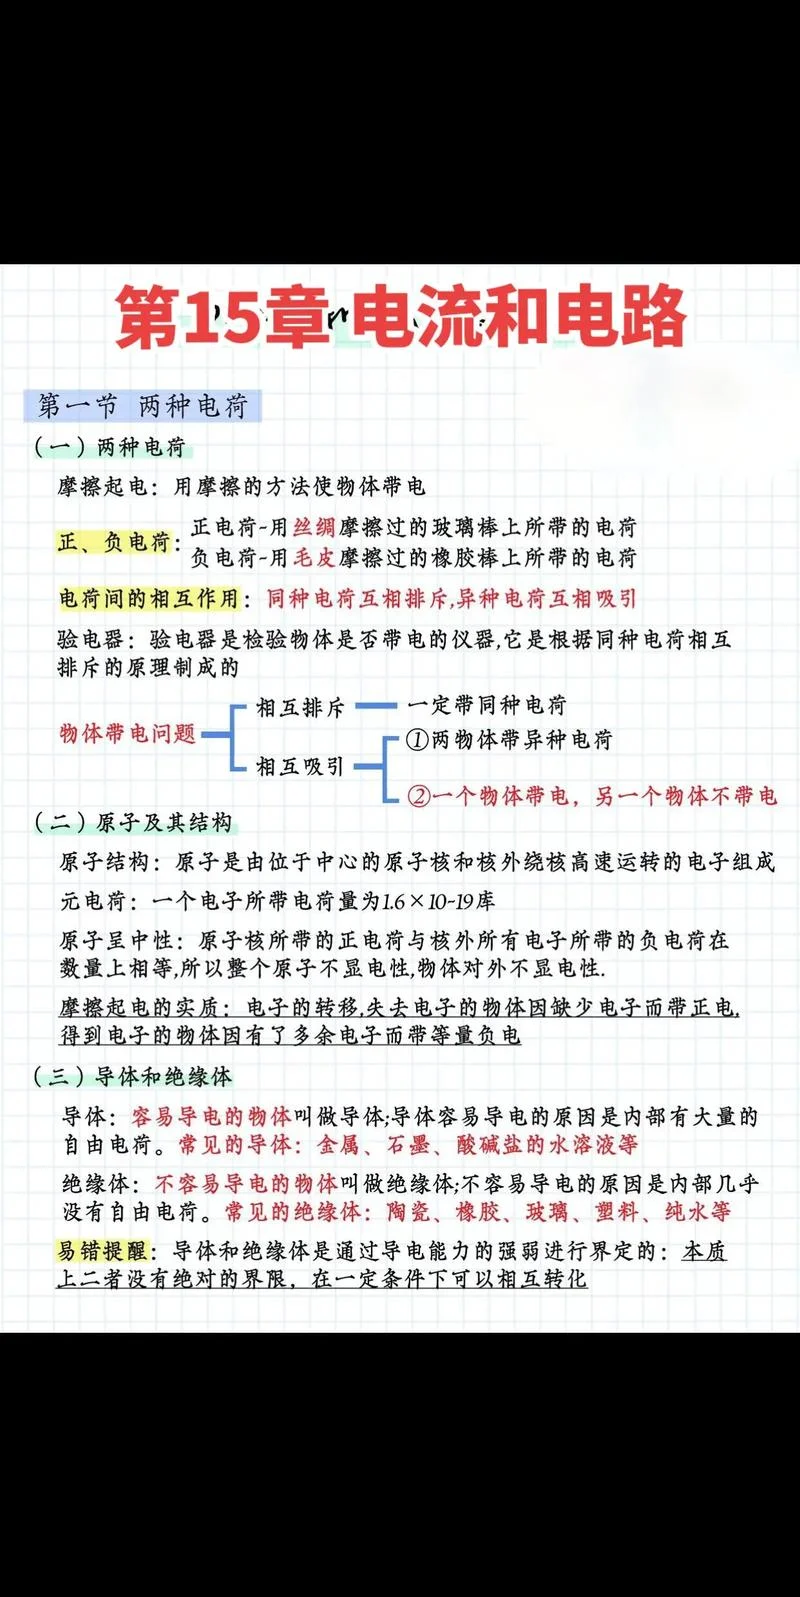 第15章 电流和电路
第一节 两种电荷
（一）两种电荷
摩擦起电：用摩擦的方法使物体带电
正、负电荷：
正电荷-用丝绸摩擦过的玻璃棒上所带的电荷
负电荷-用毛皮摩擦过的橡胶棒上所带的电荷
电荷间的相互作用：同种电荷互相排斥,异种电荷互相吸引
验电器：验电器是检验物体是否带电的仪器,它是根据同种电荷相互
排斥的原理制成的
物体带电问题
相互排斥
一定带同种电荷
相互吸引
①两物体带异种电荷
②一个物体带电，另一个物体不带电
（二）原子及其结构
原子结构：原子是由位于中心的原子核和核外绕核高速运转的电子组成
元电荷：一个电子所带电荷量为1.6×10-19库
原子呈中性：原子核所带的正电荷与核外所有电子所带的负电荷在
数量上相等,所以整个原子不显电性,物体对外不显电性.
摩擦起电的实质：电子的转移,失去电子的物体因缺少电子而带正电,
得到电子的物体因有了多余电子而带等量负电
（三）导体和绝缘体
导体：容易导电的物体叫做导体;导体容易导电的原因是内部有大量的
自由电荷。常见的导体：金属、石墨、酸碱盐的水溶液等
绝缘体：不容易导电的物体叫做绝缘体;不容易导电的原因是内部几乎
没有自由电荷。常见的绝缘体：陶瓷、橡胶、玻璃、塑料、纯水等
易错提醒：导体和绝缘体是通过导电能力的强弱进行界定的：本质
上二者没有绝对的界限，在一定条件下可以相互转化